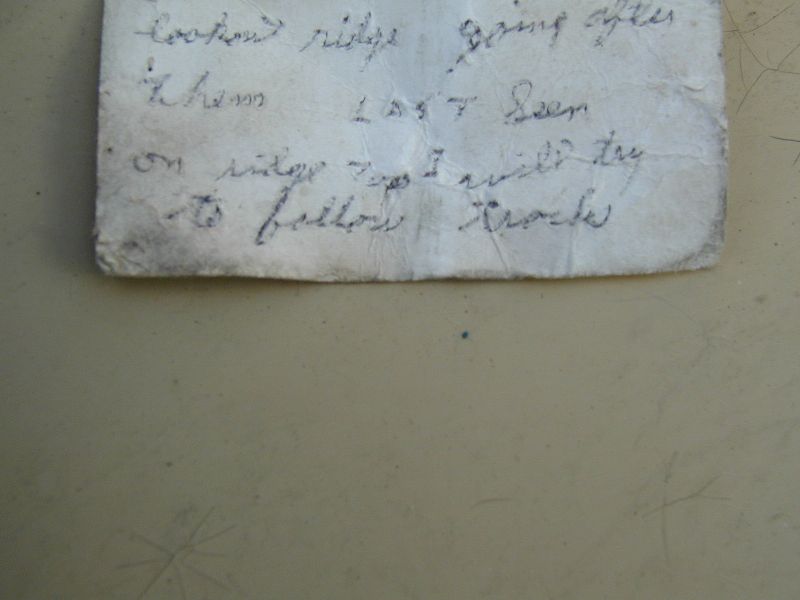 lookout ridge going after
them last seen
on ridge top I will try
to follow track